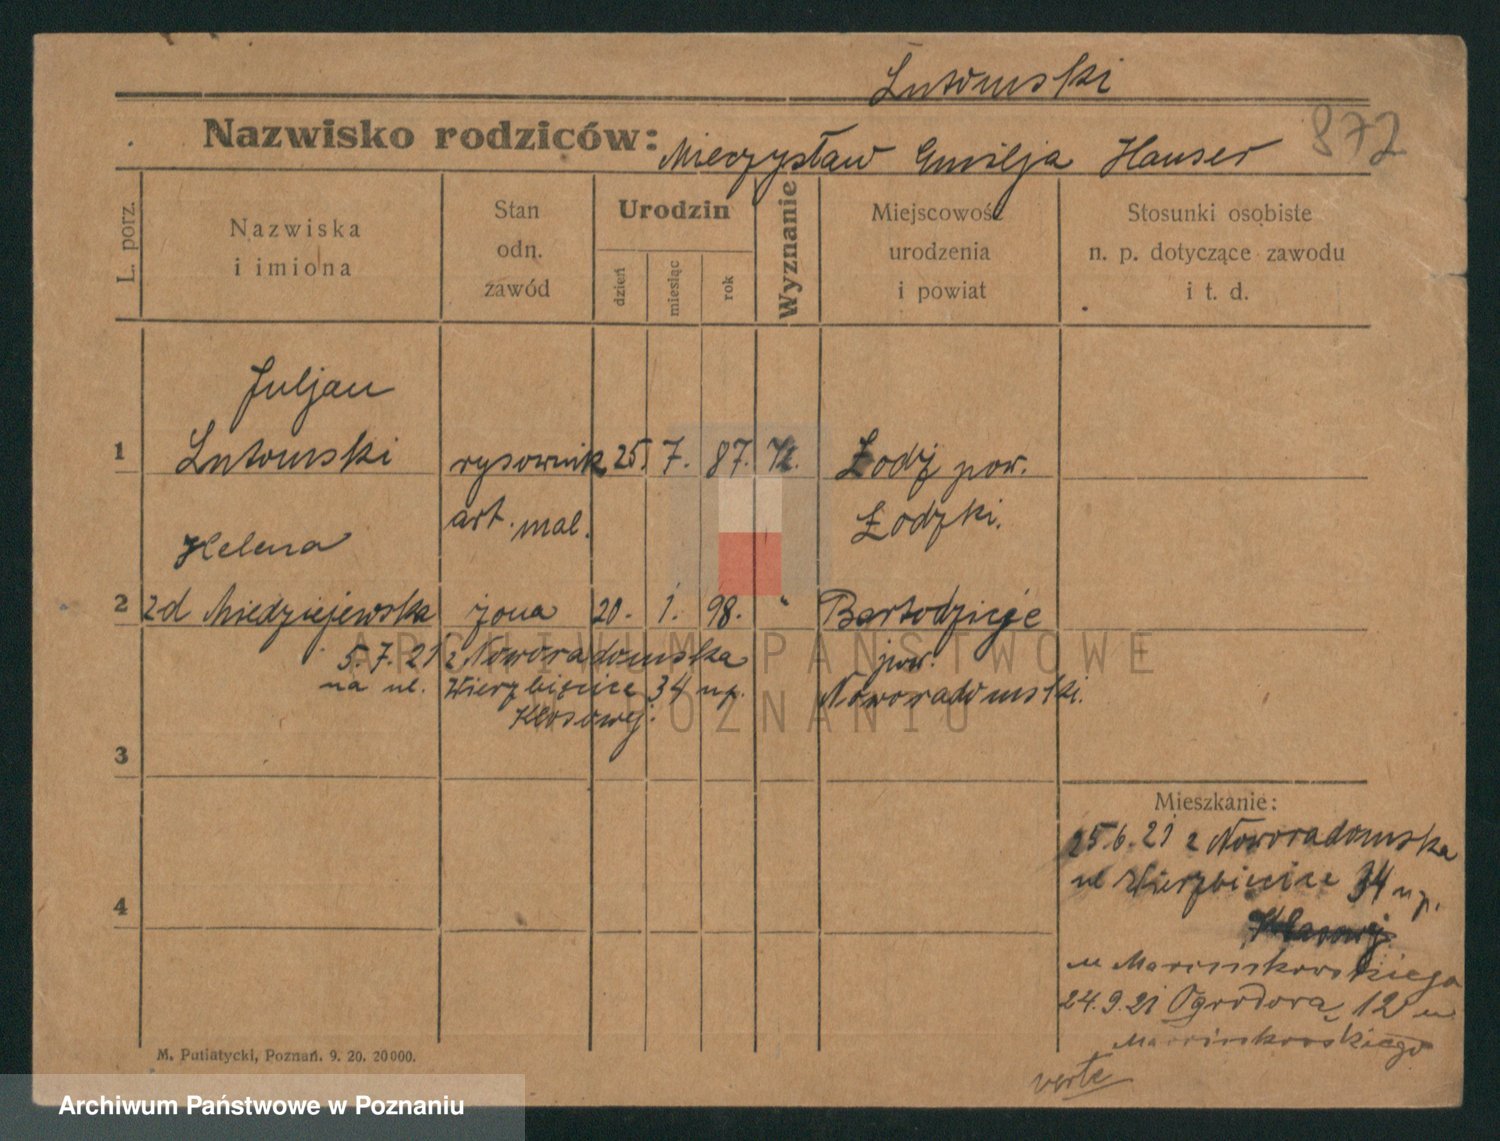 Lutomski
872
Nazwisko rodziców: Mieczysław Emilja Hauser
L. porz.
Nazwiska
i imiona
Stan
odn.
zawód
Urodzin
dzień
miesiąc
rok
Wyznanie
Miejscowość
urodzenia
i powiat
Stosunki osobiste
n. p. dotyczące zawodu
i t. d.
Juljan
1 Lutomski rysownik 25 7. 87. Łodź pow.
art. mal. Łodzki.
Helena
2 zd Niedziejewska żona 20. 1. 98. " Bartodzieje
5.7.21 z Noworadomska pow.
na ul. Wierzbięcice 34 u p. Noworadomski.
Kłosowej.
3
Mieszkanie:
25.6.21 z Noworadomska
ul Wierzbięcice 34 u p.
4
Kłosowej
u Marcinkowskiego
24.9.21 Ogrodowa 12 u
Marcinkowskiego
verte
M. Putiatycki, Poznań. 9. 20. 20 000.
ARCHIWUM PAŃSTWOWE
W POZNANIU
Archiwum Państwowe w Poznaniu